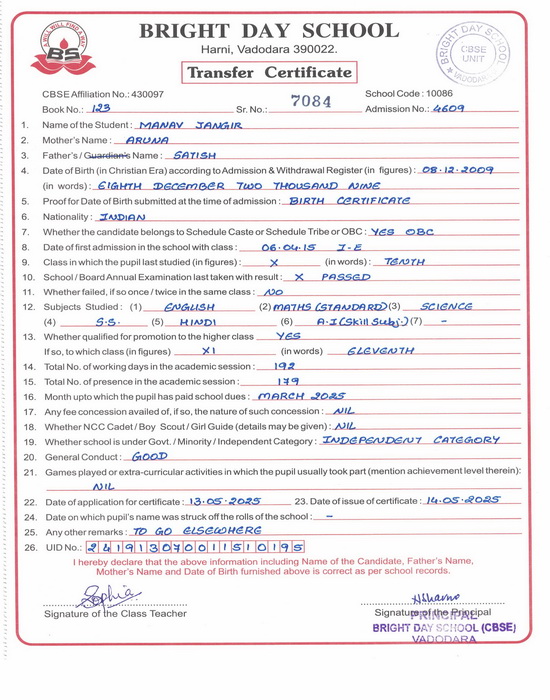 A WILL WILL FIND A WAY
BS
BRIGHT DAY SCHOOL
Harni, Vadodara 390022.
Transfer Certificate
BRIGHT DAY SCHOOL
CBSE
UNIT
VADODARA
CBSE Affiliation No.: 430097
School Code : 10086
Book No.: 123
Sr. No.: 7084
Admission No.: 4609
1. Name of the Student : MANAV JANGIR
2. Mother's Name : ARUNA
3. Father's / Guardian's Name : SATISH
4. Date of Birth (in Christian Era) according to Admission & Withdrawal Register (in figures) : 08.12.2009
(in words) : EIGHTH DECEMBER TWO THOUSAND NINE
5. Proof for Date of Birth submitted at the time of admission : BIRTH CERTIFICATE
6. Nationality : INDIAN
7. Whether the candidate belongs to Schedule Caste or Schedule Tribe or OBC : YES OBC
8. Date of first admission in the school with class : 06.04.15 I-E
9. Class in which the pupil last studied (in figures) : X (in words) : TENTH
10. School / Board Annual Examination last taken with result : X PASSED
11. Whether failed, if so once / twice in the same class : NO
12. Subjects Studied : (1) ENGLISH (2) MATHS (STANDARD) (3) SCIENCE
(4) S.S. (5) HINDI (6) A.I (Skill Subj.) (7) -
13. Whether qualified for promotion to the higher class YES
If so, to which class (in figures) XI (in words) ELEVENTH
14. Total No. of working days in the academic session : 192
15. Total No. of presence in the academic session : 179
16. Month upto which the pupil has paid school dues : MARCH 2025
17. Any fee concession availed of, if so, the nature of such concession : NIL
18. Whether NCC Cadet / Boy Scout / Girl Guide (details may be given) : NIL
19. Whether school is under Govt. / Minority / Independent Category : INDEPENDENT CATEGORY
20. General Conduct : GOOD
21. Games played or extra-curricular activities in which the pupil usually took part (mention achievement level therein):
NIL
22. Date of application for certificate : 13.05.2025 23. Date of issue of certificate : 14.05.2025
24. Date on which pupil's name was struck off the rolls of the school : -
25. Any other remarks : TO GO ELSEWHERE
26. UID No.: 241913070011510195
I hereby declare that the above information including Name of the Candidate, Father's Name,
Mother's Name and Date of Birth furnished above is correct as per school records.
Sophia
Signature of the Class Teacher
Signature of the Principal
PRINCIPAL
BRIGHT DAY SCHOOL (CBSE)
VADODARA